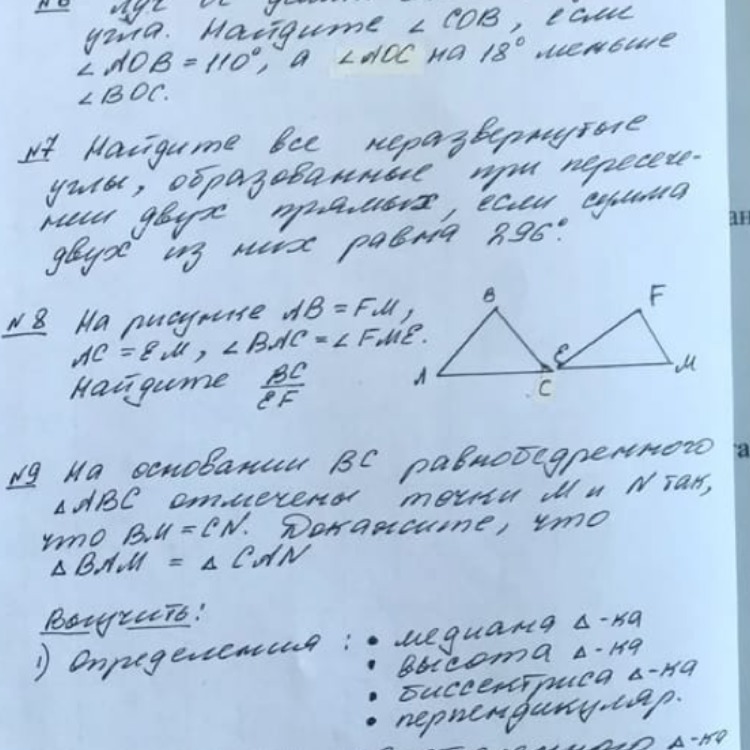 №6 Луч
угла. Найдите ∠COB, если
∠AOB = 110°, а ∠AOC на 18° меньше
∠BOC.
№7 Найдите все неразвернутые
углы, образованные при пересече-
нии двух прямых, если сумма
двух из них равна 296°.
№8 На рисунке AB = FM,
AC = EM, ∠BAC = ∠FME.
Найдите BC/EF
B
F
A
C
E
M
№9 На основании BC равнобедренного
△ABC отмечены точки M и N так,
что BM = CN. Докажите, что
△BAM = △CAN
Выучить!
1) Определения: • медиана △-ка
• высота △-ка
• биссектриса △-ка
• перпендикуляр.
△-ка
ан
та